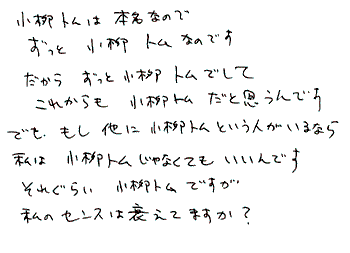 小柳トムは 本名なので
ずっと 小柳 トム なのです
だから ずっと 小柳トムでして
これからも 小柳トム だと思うんです
でも、もし 他に 小柳トム という人がいるなら
私は 小柳トム じゃなくても いいんです
それぐらい 小柳トム ですが
私の センスは 衰えてますか?